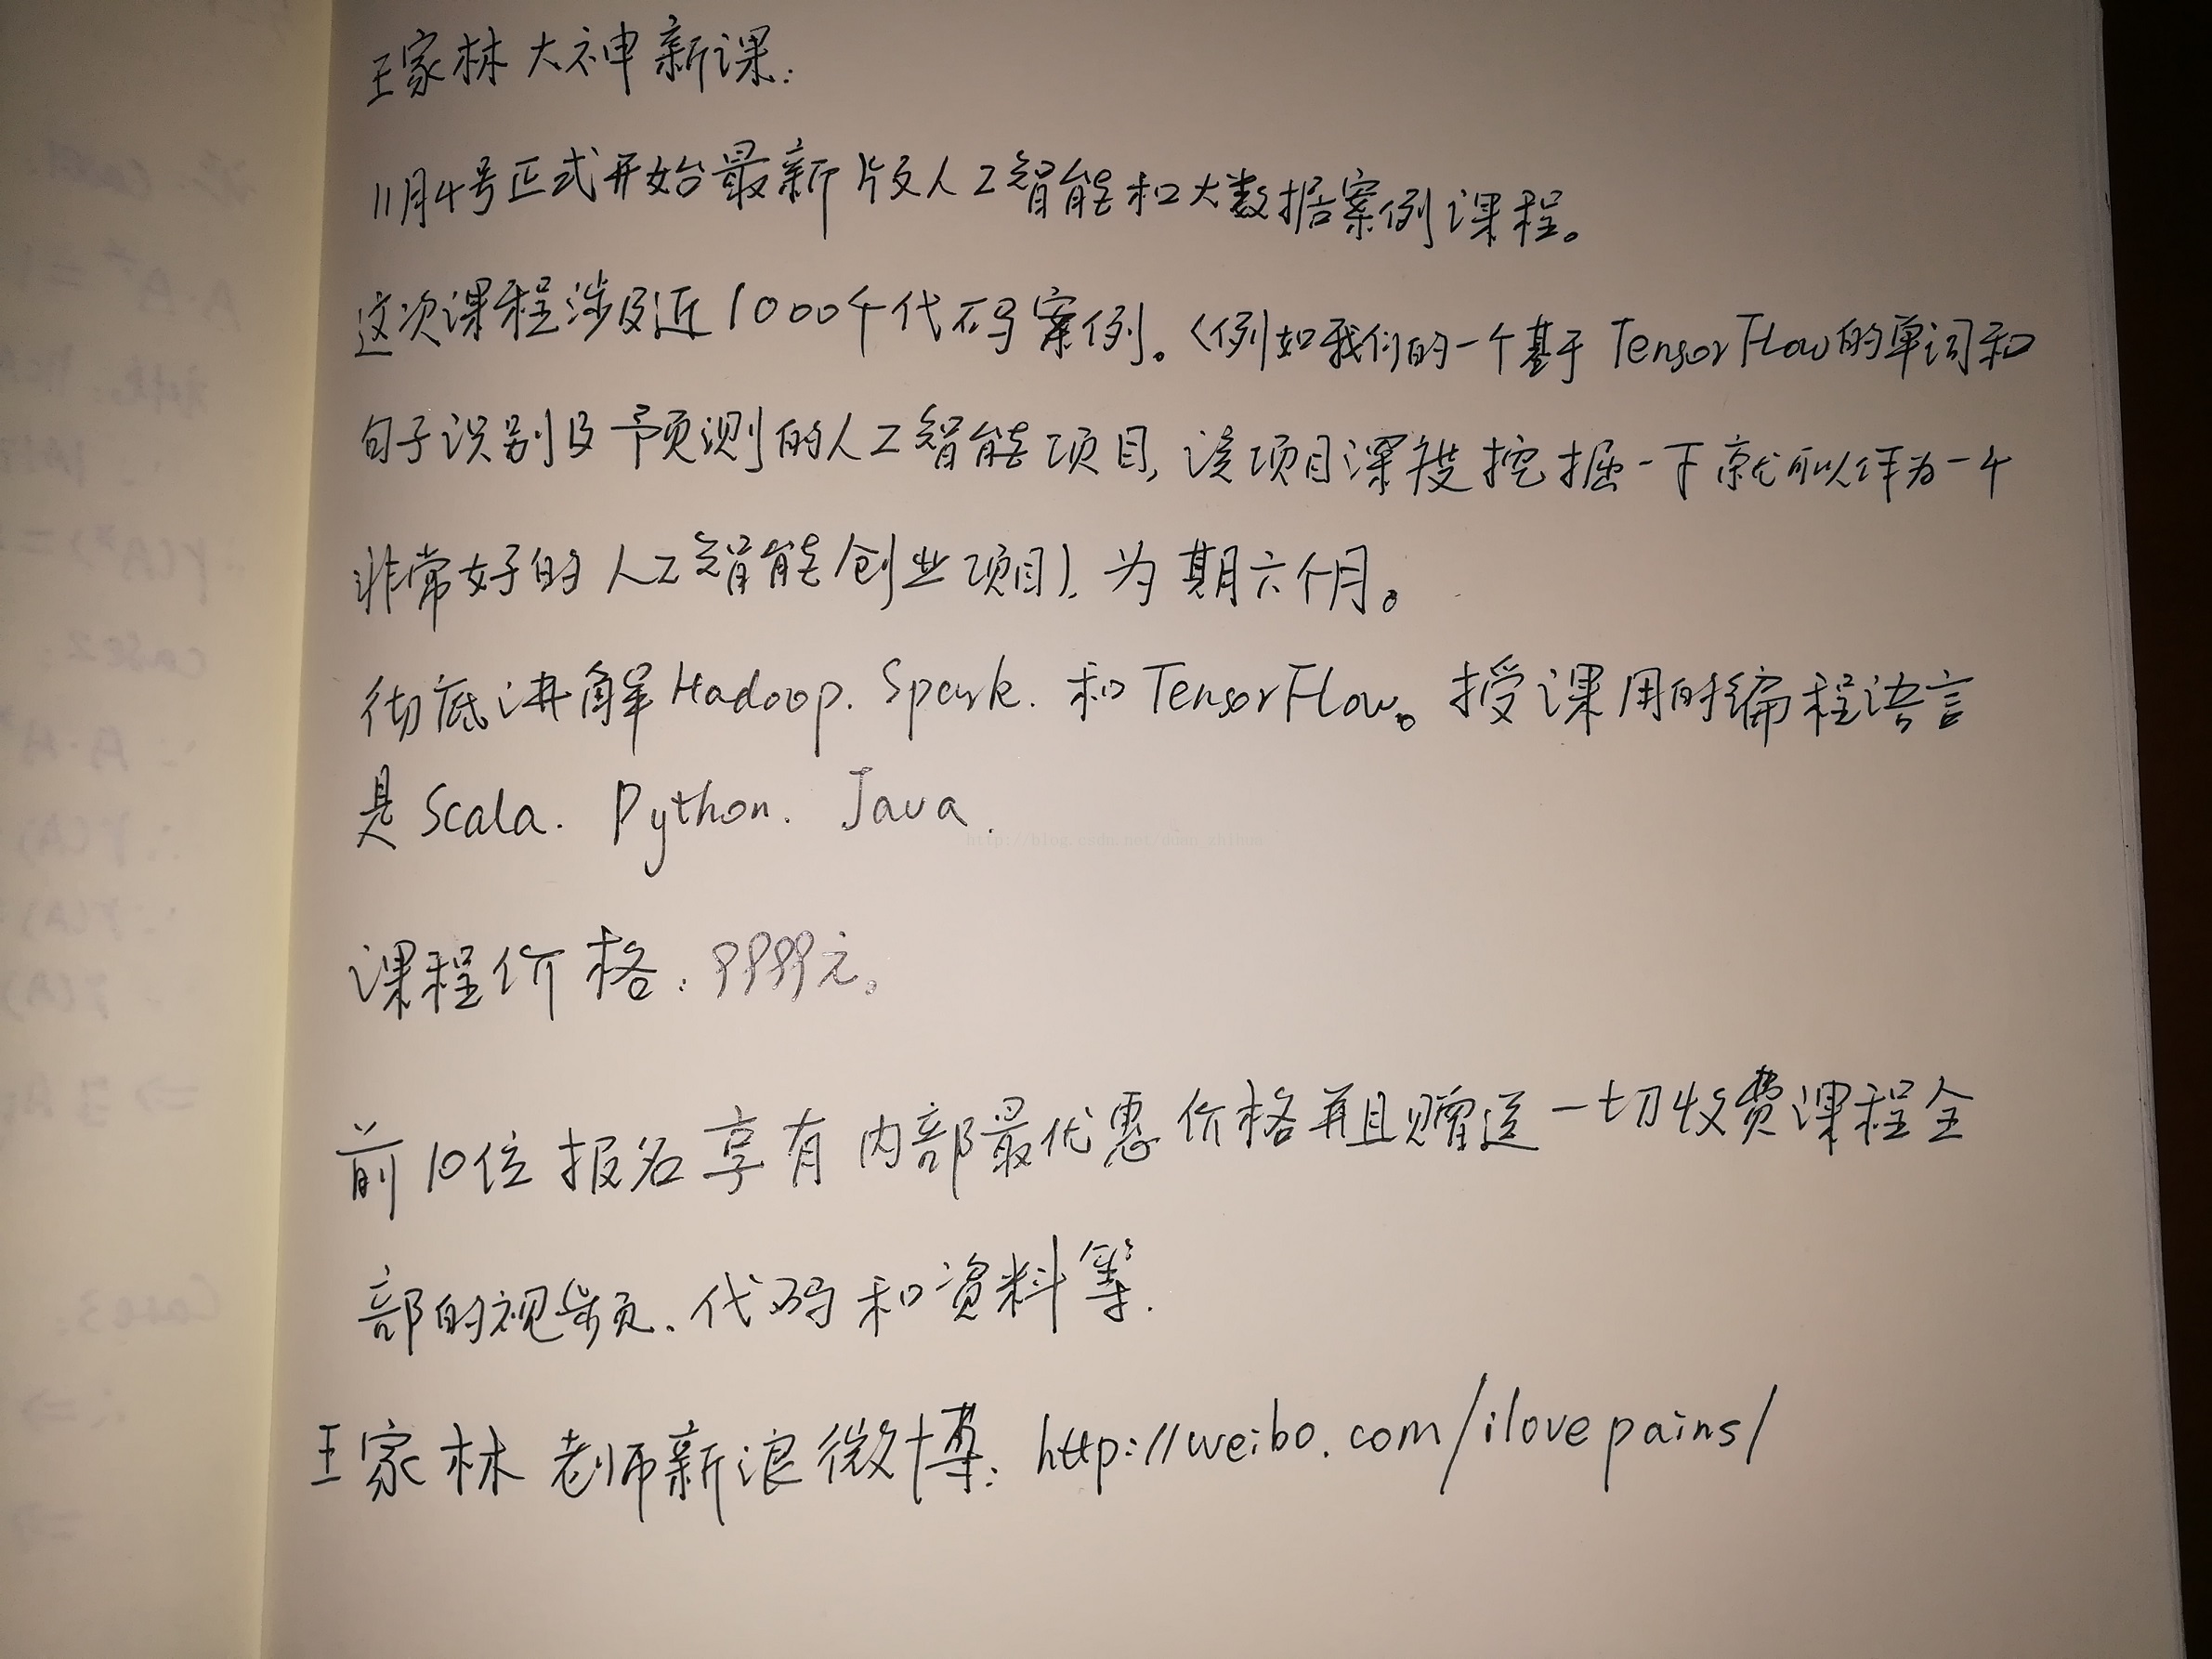 王家林大神新课:
11月4号正式开始最新版人工智能和大数据案例课程。
这次课程涉及近1000个代码案例。(例如我们的一个基于TensorFlow的单词和
句子识别及预测的人工智能项目,该项目深度挖掘一下就可以作为一个
非常好的人工智能创业项目).为期六个月。
彻底讲解Hadoop.Spark.和TensorFlow。授课用的编程语言
是Scala.Python.Java.
http://blog.csdn.net/duan_zhihua
课程价格:9999元。
前10位报名享有内部最优惠价格并且赠送一切收费课程全
部的视频、代码和资料等.
王家林老师新浪微博:http://weibo.com/ilovepains/